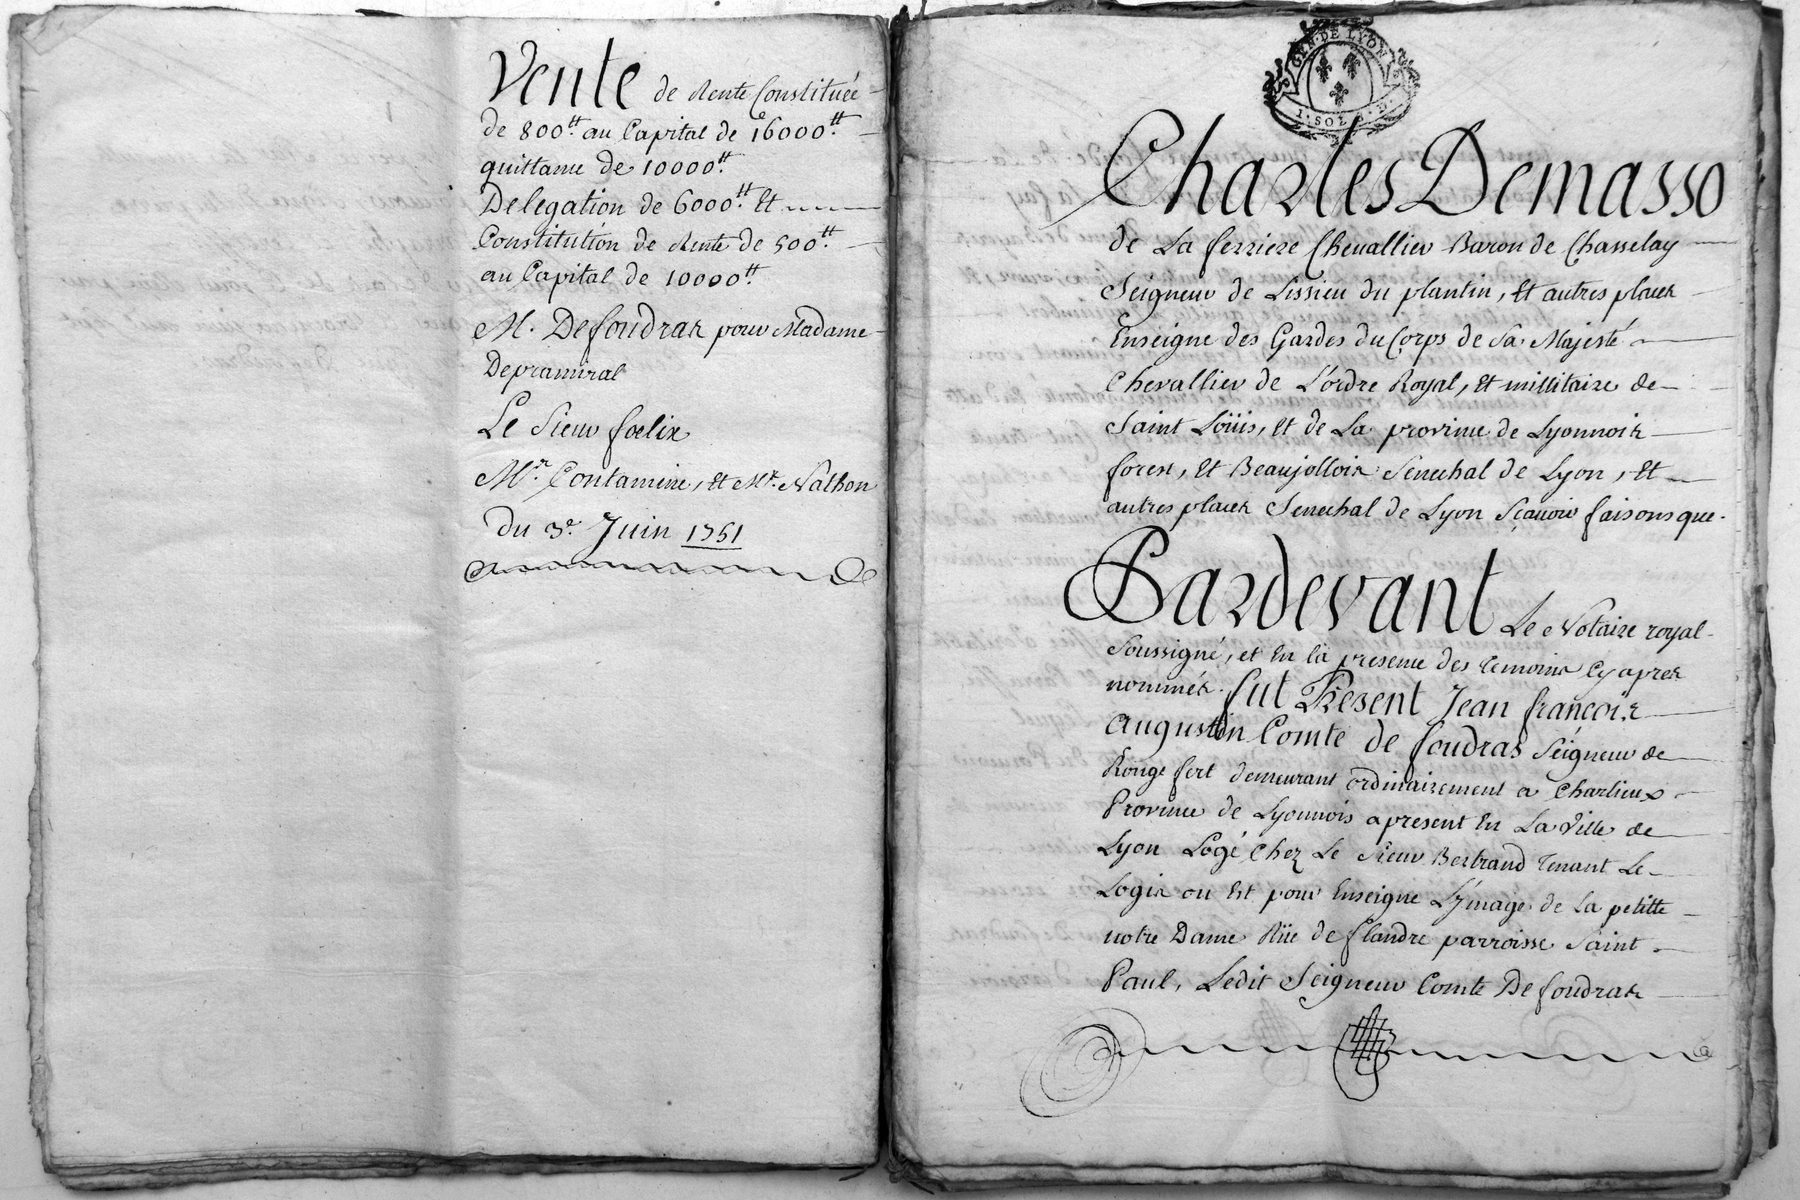 Vente de Rente Constituée
de 800ᵗᵗ au Capital de 16000ᵗᵗ
quittance de 10000ᵗᵗ
Delegation de 6000ᵗᵗ Et
Constitution de Rente de 500ᵗᵗ
au Capital de 10000ᵗᵗ
M. Defoudras pour Madame
Depramiral
Le Sieur foelix
Mr. Contamine, et Mr. Nathon
du 3e. Juin 1751
GEN. DE LYON
1. SOL
Charles Demasso
de La ferriere Chevallier Baron de Chasselay
Seigneur de Lissieu du plantin, Et autres places
Enseigne des Gardes du Corps de Sa Majesté
Chevallier de L'ordre Royal, Et millitaire de
Saint Loüis, Et de La province de Lyonnois
forest, Et Beaujollois Senechal de Lyon, Et
autres places Senechal de Lyon Sçavoir faisons que.
Pardevant Le Notaire royal
Soussigné, et En la presence des Temoins Cy apres
nommés. fut Present Jean françois
Augustin Comte de foudras Seigneur de
Rongefert demeurant ordinairement a Charlieux
Province de Lyonnois apresent En La Ville de
Lyon Logé Chez Le Sieur Bertrand Tenant Le
Logis ou Est pour Enseigne L'ymage de La petitte
notre Dame Rüe de flandre parroisse Saint
Paul, Ledit Seigneur Comte De foudras